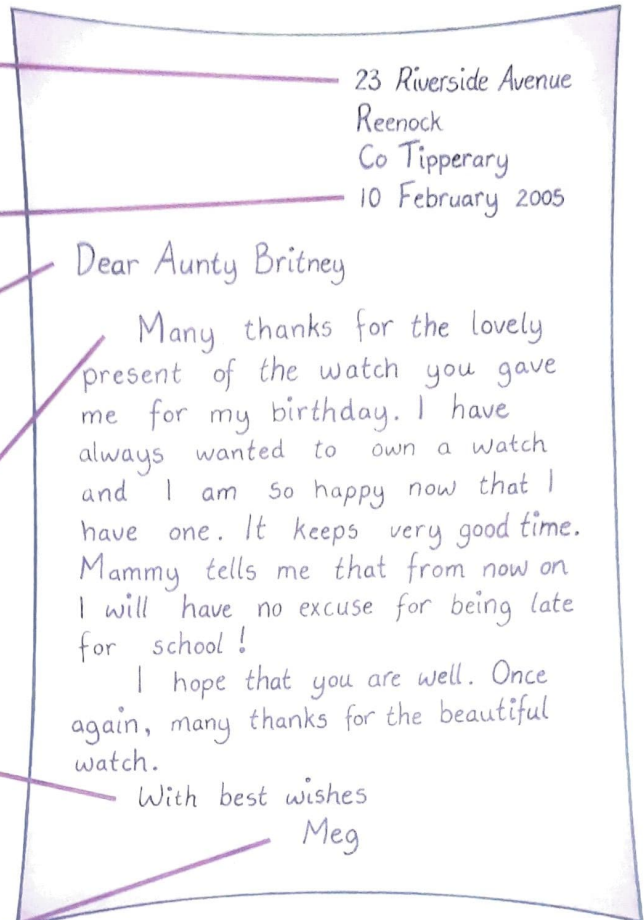 23 Riverside Avenue
Reenock
Co Tipperary
10 February 2005
Dear Aunty Britney
Many thanks for the lovely
present of the watch you gave
me for my birthday. I have
always wanted to own a watch
and I am so happy now that I
have one. It keeps very good time.
Mammy tells me that from now on
I will have no excuse for being late
for school!
I hope that you are well. Once
again, many thanks for the beautiful
watch.
With best wishes
Meg